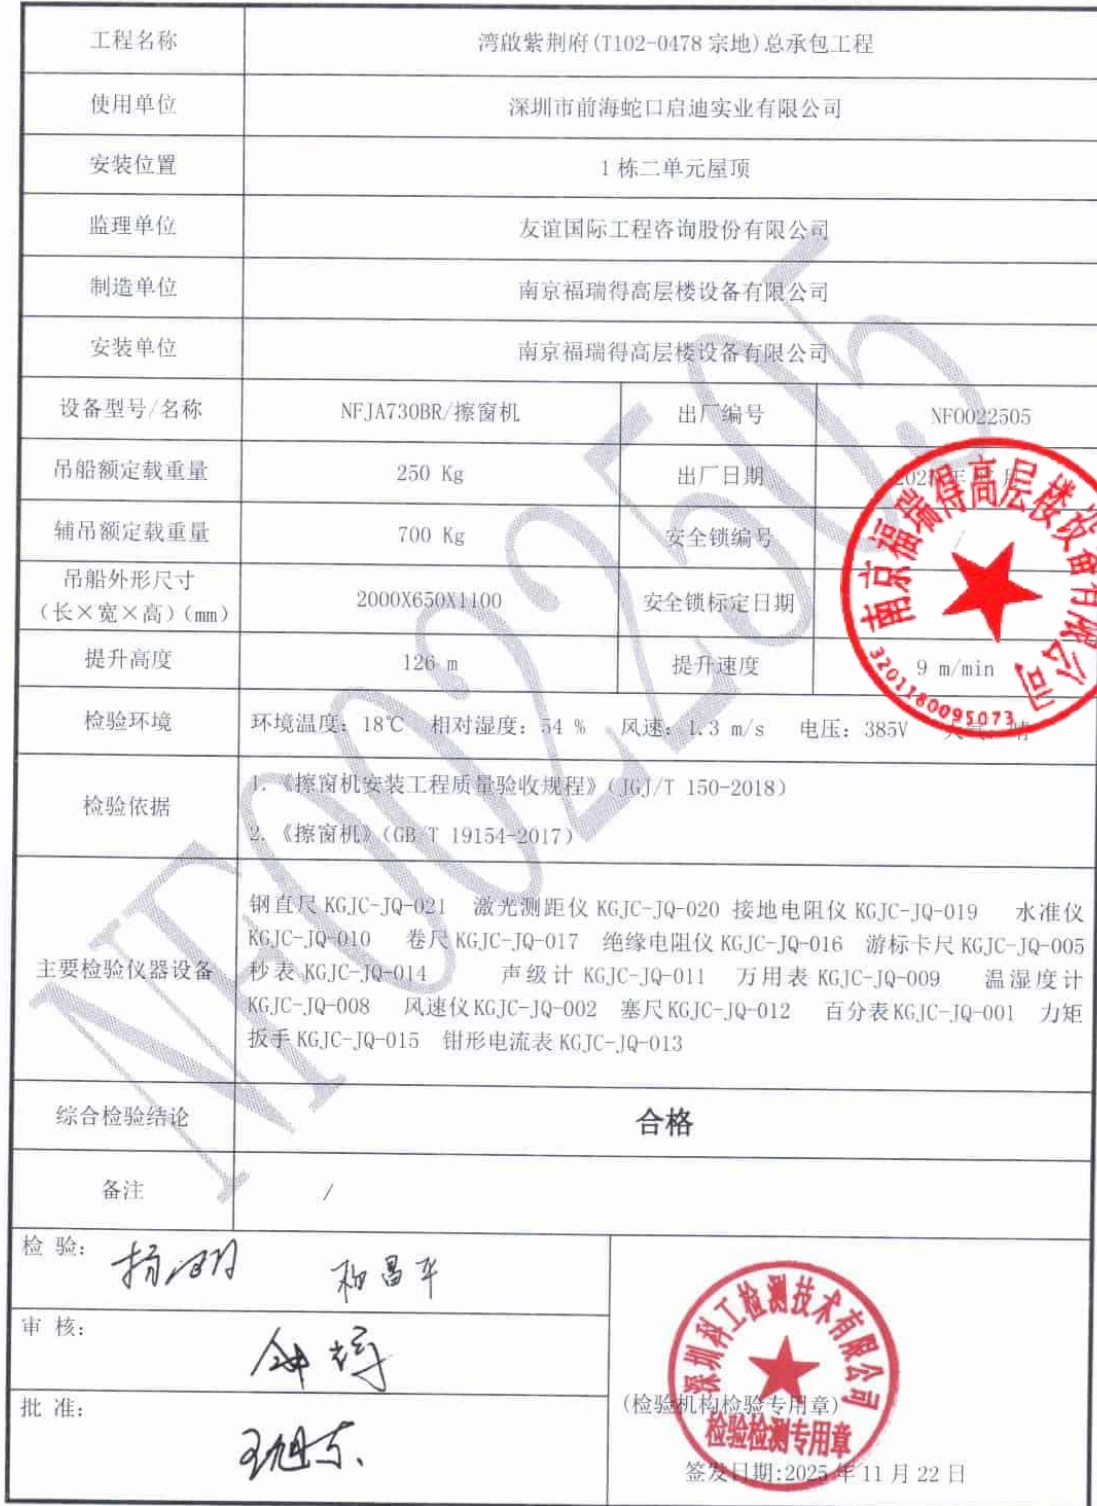 工程名称 湾啟紫荆府(T102-0478 宗地)总承包工程
使用单位 深圳市前海蛇口启迪实业有限公司
安装位置 1 栋二单元屋顶
监理单位 友谊国际工程咨询股份有限公司
制造单位 南京福瑞得高层楼设备有限公司
安装单位 南京福瑞得高层楼设备有限公司
设备型号/名称 NFJA730BR/擦窗机 出厂编号 NF0022505
吊船额定载重量 250 Kg 出厂日期 202 年 月
辅吊额定载重量 700 Kg 安全锁编号 /
吊船外形尺寸
(长×宽×高)(mm) 2000X650X1100 安全锁标定日期
提升高度 126 m 提升速度 9 m/min
检验环境 环境温度：18℃ 相对湿度：54 % 风速：1.3 m/s 电压：385V 天气：晴
检验依据
1.《擦窗机安装工程质量验收规程》(JGJ/T 150-2018)
2.《擦窗机》(GB/T 19154-2017)
主要检验仪器设备
钢直尺 KGJC-JQ-021 激光测距仪 KGJC-JQ-020 接地电阻仪 KGJC-JQ-019 水准仪
KGJC-JQ-010 卷尺 KGJC-JQ-017 绝缘电阻仪 KGJC-JQ-016 游标卡尺 KGJC-JQ-005
秒表 KGJC-JQ-014 声级计 KGJC-JQ-011 万用表 KGJC-JQ-009 温湿度计
KGJC-JQ-008 风速仪 KGJC-JQ-002 塞尺 KGJC-JQ-012 百分表 KGJC-JQ-001 力矩
扳手 KGJC-JQ-015 钳形电流表 KGJC-JQ-013
综合检验结论 合格
备注 /
检 验：
审 核：
批 准：
(检验机构检验专用章)
签发日期:2025 年 11 月 22 日
南京福瑞得高层楼设备有限公司
3201180095073
深圳科工检测技术有限公司
检验检测专用章
NF0022505